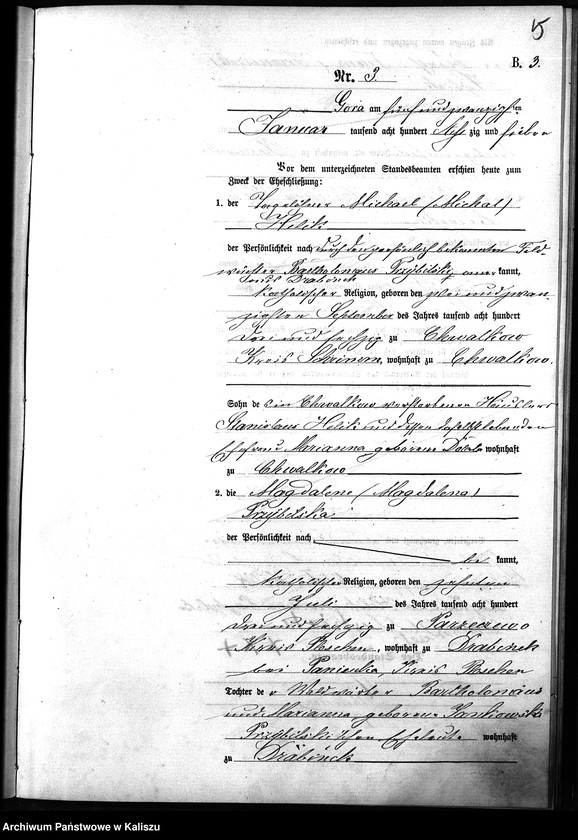 5
B. 3.
Nr. 3.
Gora am fünfundzwanzigsten
Januar tausend acht hundert acht zig und sieben
Vor dem unterzeichneten Standesbeamten erschien heute zum
Zweck der Eheschließung:
1. der Tagelöhner Michael (Michal)
Helik
der Persönlichkeit nach durch den persönlich bekannten
Bartholomäus Przybilski, kannt,
aus Drabinek
katholischer Religion, geboren den zweiundzwan-
zigsten September des Jahres tausend acht hundert
drei und sechzig zu Chwalkowo
Kreis Schrimm, wohnhaft zu Chwalkowo.
Sohn des in Chwalkowo verstorbenen Häuslers
Stanislaus Helik und dessen daselbst lebenden
Ehefrau Marianna geborene wohnhaft
zu Chwalkowo
2. die Magdalene (Magdalena)
Przybilska
der Persönlichkeit nach
be kannt,
katholischer Religion, geboren den zehnten
Juli des Jahres tausend acht hundert
drei und sechzig zu Parzewo
Kreis Pleschen, wohnhaft zu Drabinek
bei Panienka, Kreis Pleschen
Tochter der Waldwärter Bartholomäus
und Marianna geborene
Przybilski'schen Eheleute wohnhaft
zu Drabinek
Archiwum Państwowe w Kaliszu